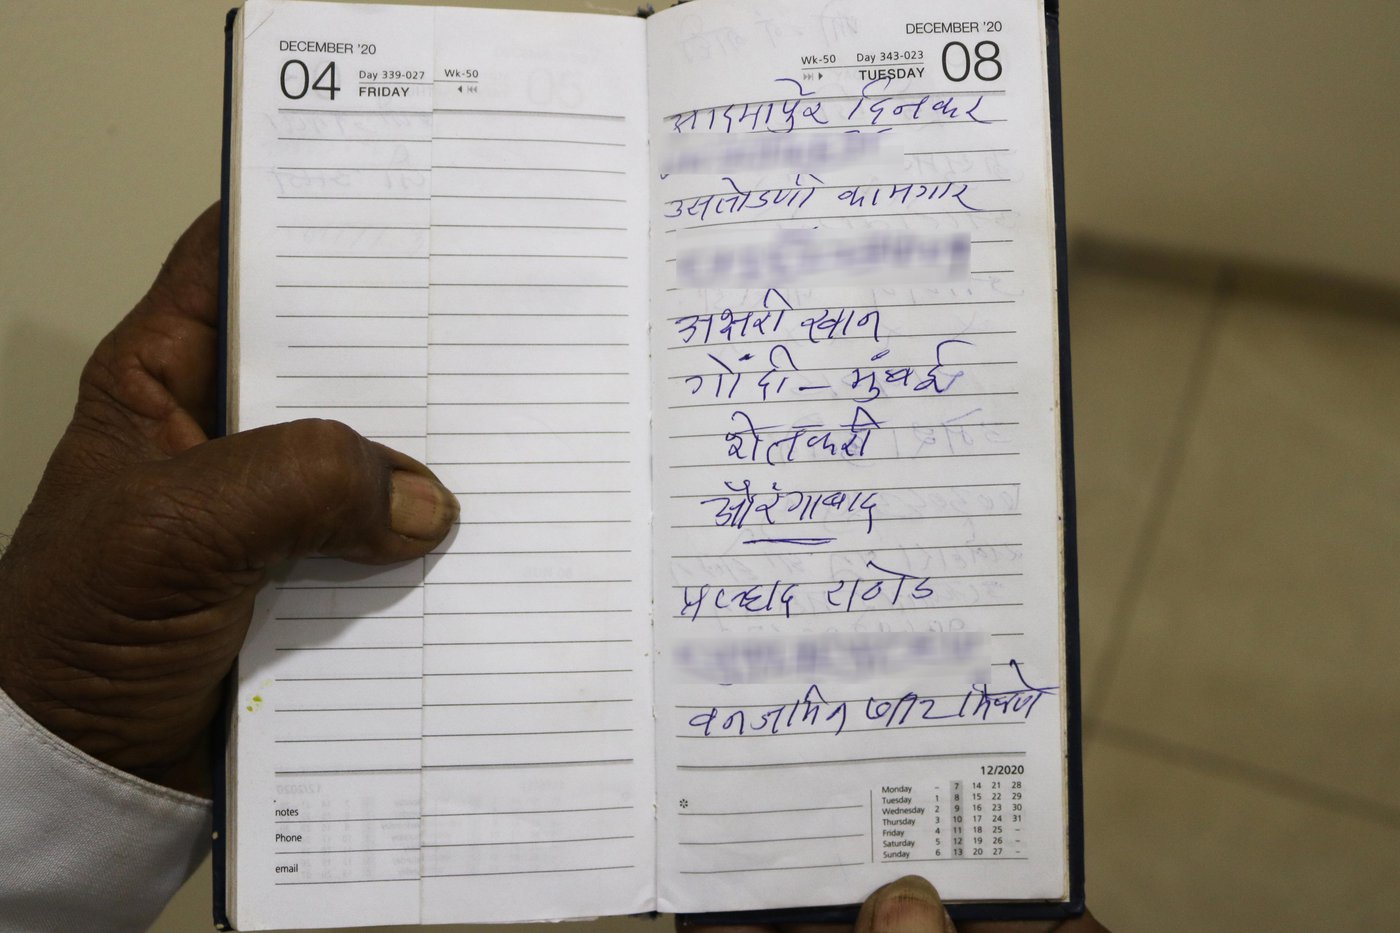 DECEMBER '20
04
Day 339-027
FRIDAY
Wk-50
notes
Phone
email
DECEMBER '20
Wk-50
Day 343-023
TUESDAY
08
दिनकर
उसतोडणी कामगार
अक्षरी खान
गोंदी – मुंबई
शेतकरी
औरंगाबाद
प्रल्हाद राठोड
12/2020
Monday – 7 14 21 28
Tuesday 1 8 15 22 29
Wednesday 2 9 16 23 30
Thursday 3 10 17 24 31
Friday 4 11 18 25 –
Saturday 5 12 19 26 –
Sunday 6 13 20 27 –